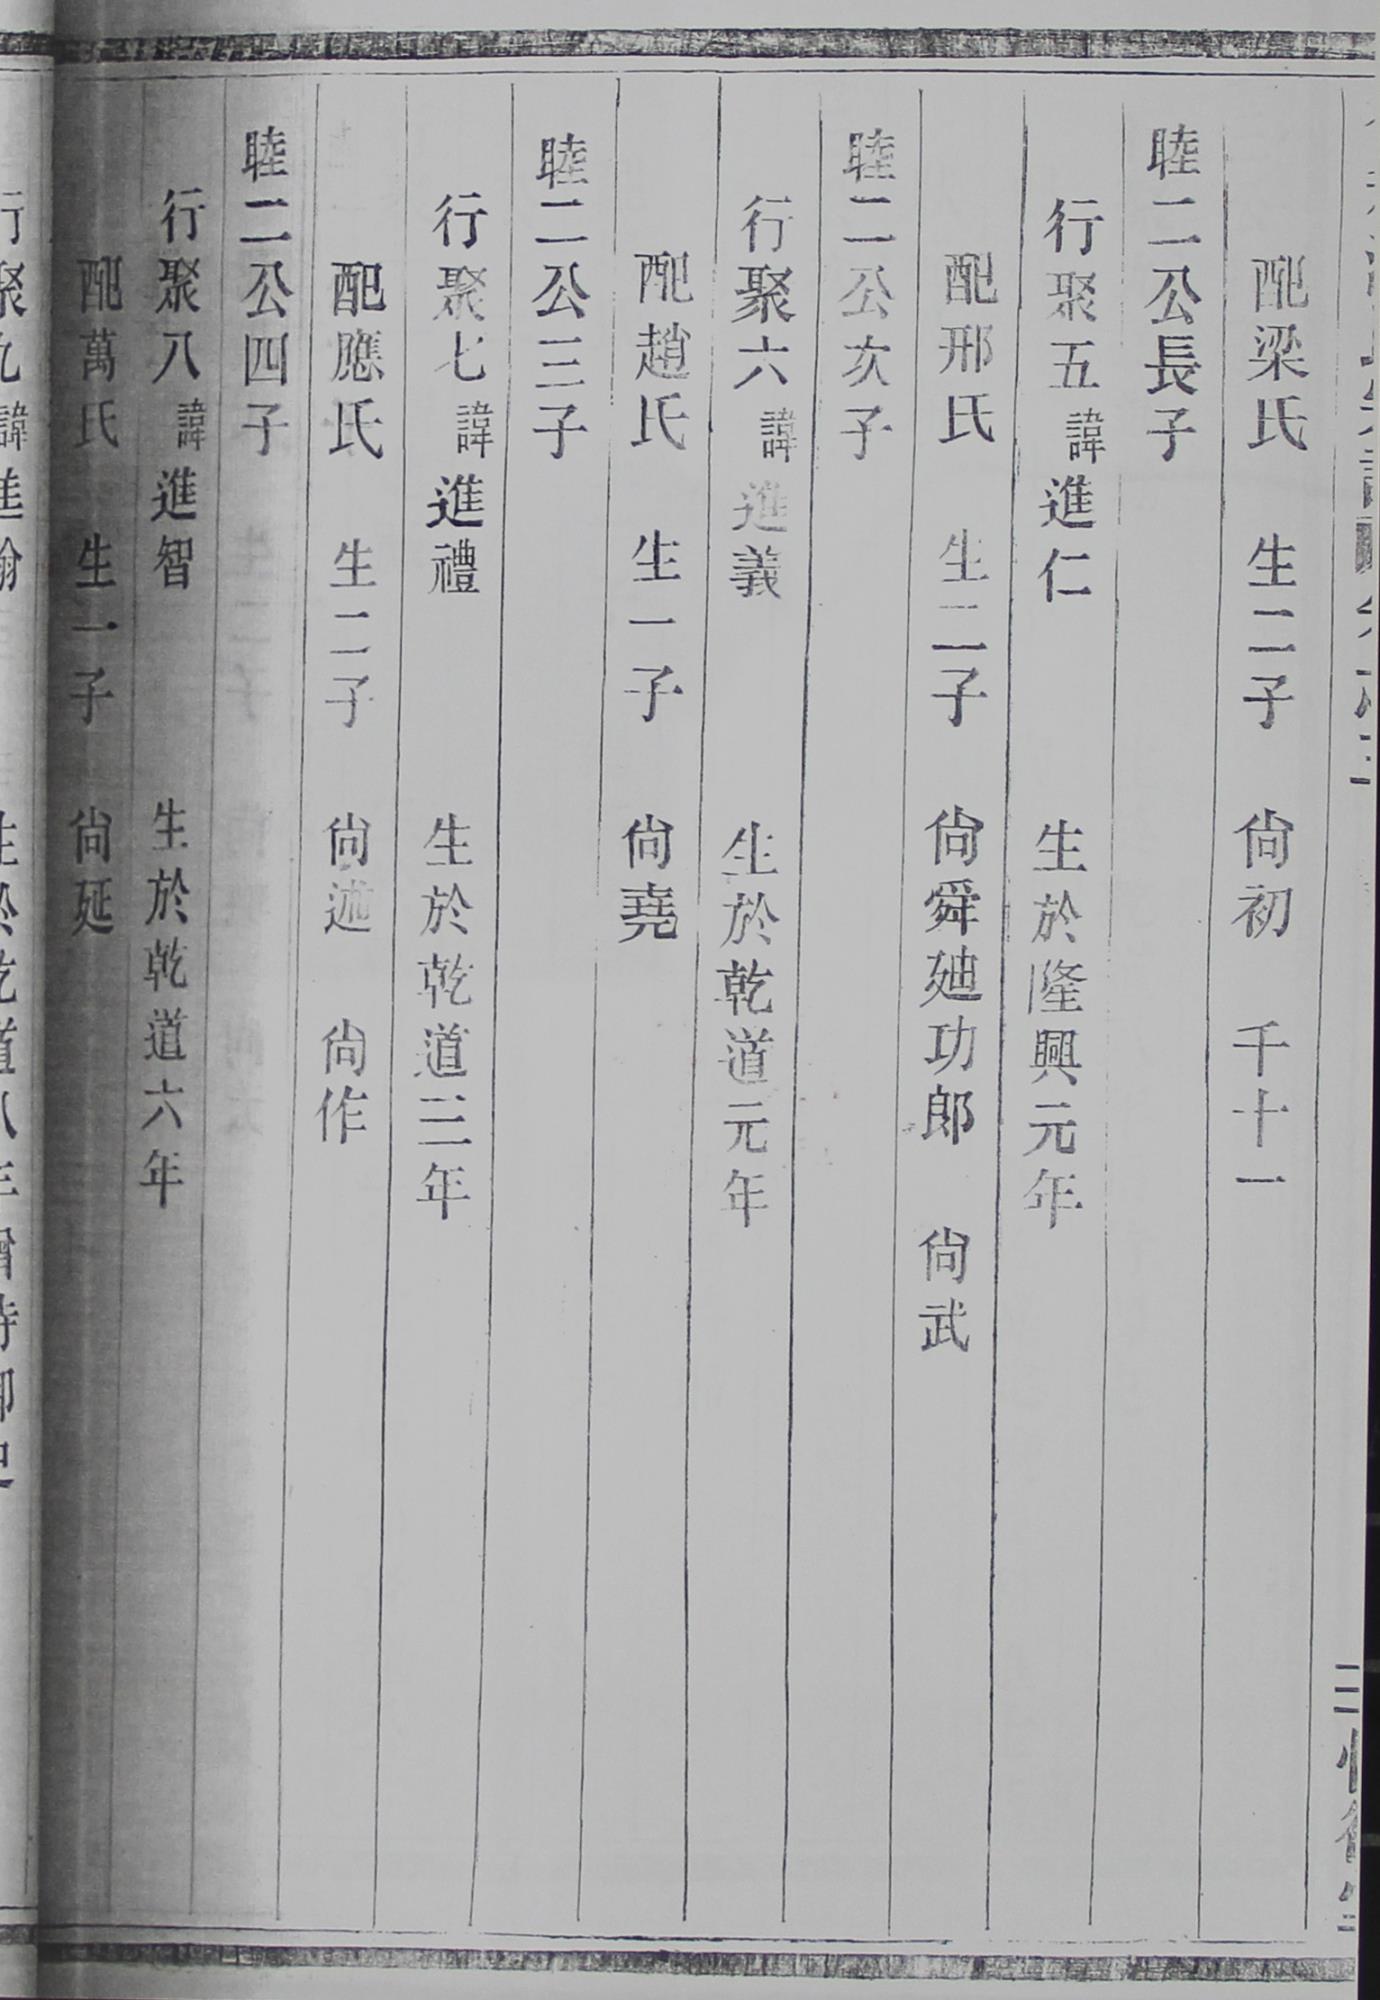 配梁氏 生二子 尙初 千十一
睦二公長子
行聚五諱進仁 生於隆興元年
配邢氏 生二子 尙舜廸功郎 尙武
睦二公次子
行聚六諱進義 生於乾道元年
配趙氏 生一子 尙堯
睦二公三子
行聚七諱進禮 生於乾道三年
配應氏 生二子 尙述 尙作
睦二公四子
行聚八諱進智 生於乾道六年
配萬氏 生一子 尙延
行聚九諱進 生於乾道八年